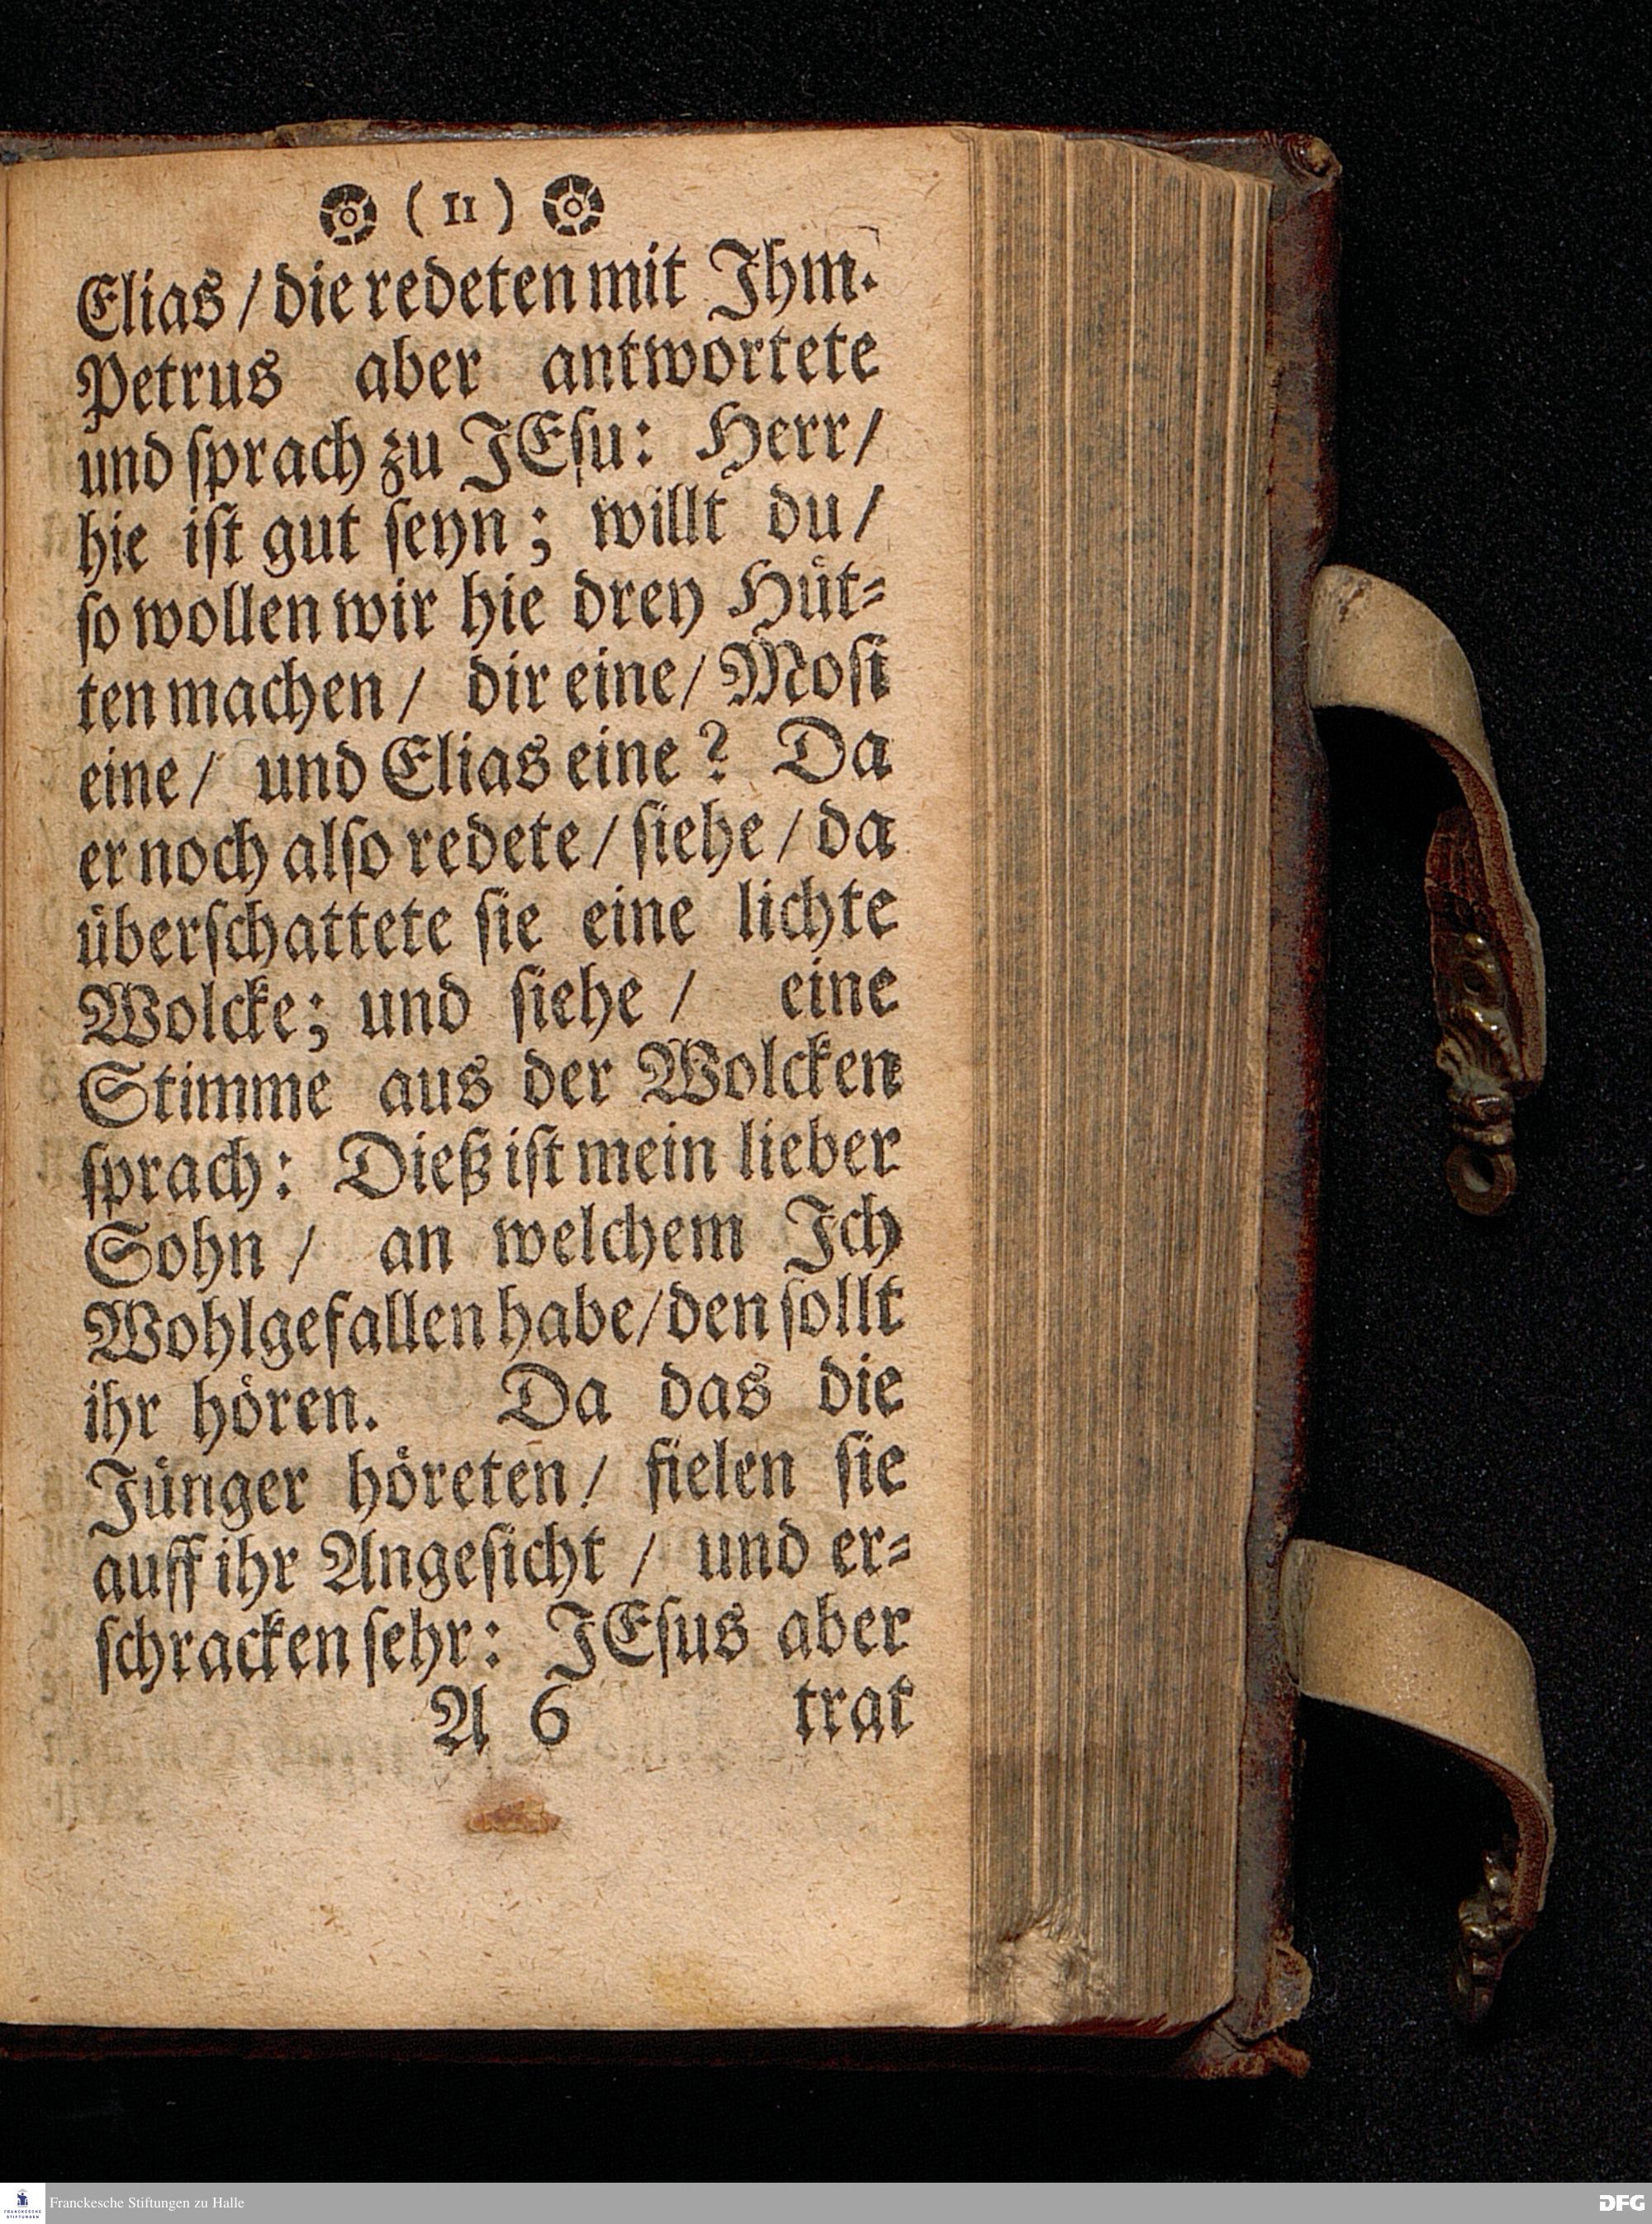 ( 11 )
Elias / die redeten mit Ihm.
Petrus aber antwortete
und ſprach zu JEſu: Herr/
hie iſt gut ſeyn; willt du/
ſo wollen wir hie drey Huͤt-
ten machen/ dir eine/ Moſi
eine/ und Elias eine? Da
er noch alſo redete/ ſiehe/ da
uͤberſchattete ſie eine lichte
Wolcke; und ſiehe / eine
Stimme aus der Wolcken
ſprach: Dieß iſt mein lieber
Sohn / an welchem Ich
Wohlgefallen habe/ den ſollt
ihr hoͤren. Da das die
Juͤnger hoͤreten/ fielen ſie
auff ihr Angeſicht / und er-
ſchracken ſehr: JEſus aber
A 6 trat
FRANCKESCHE STIFTUNGEN
Franckesche Stiftungen zu Halle
DFG